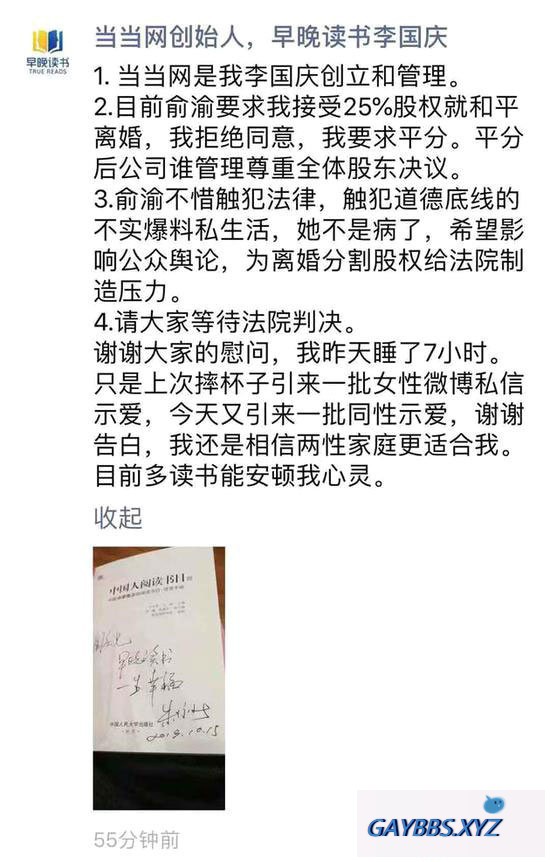 早晚读书
TRUE READS
当当网创始人，早晚读书李国庆
1. 当当网是我李国庆创立和管理。
2.目前俞渝要求我接受25%股权就和平
离婚，我拒绝同意，我要求平分。平分
后公司谁管理尊重全体股东决议。
3.俞渝不惜触犯法律，触犯道德底线的
不实爆料私生活，她不是病了，希望影
响公众舆论，为离婚分割股权给法院制
造压力。
4.请大家等待法院判决。
谢谢大家的慰问，我昨天睡了7小时。
只是上次摔杯子引来一批女性微博私信
示爱，今天又引来一批同性示爱，谢谢
告白，我还是相信两性家庭更适合我。
目前多读书能安顿我心灵。
收起
中国人阅读书目
早晚读书
一生幸福
中国人民大学出版社
2019.10.15
55分钟前
GAYBBS.XYZ